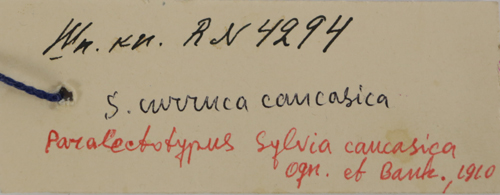 Шп. кп. RN 4294
S. curruca caucasica
Paralectotypus Sylvia caucasica
Ogn. et Bank., 1910